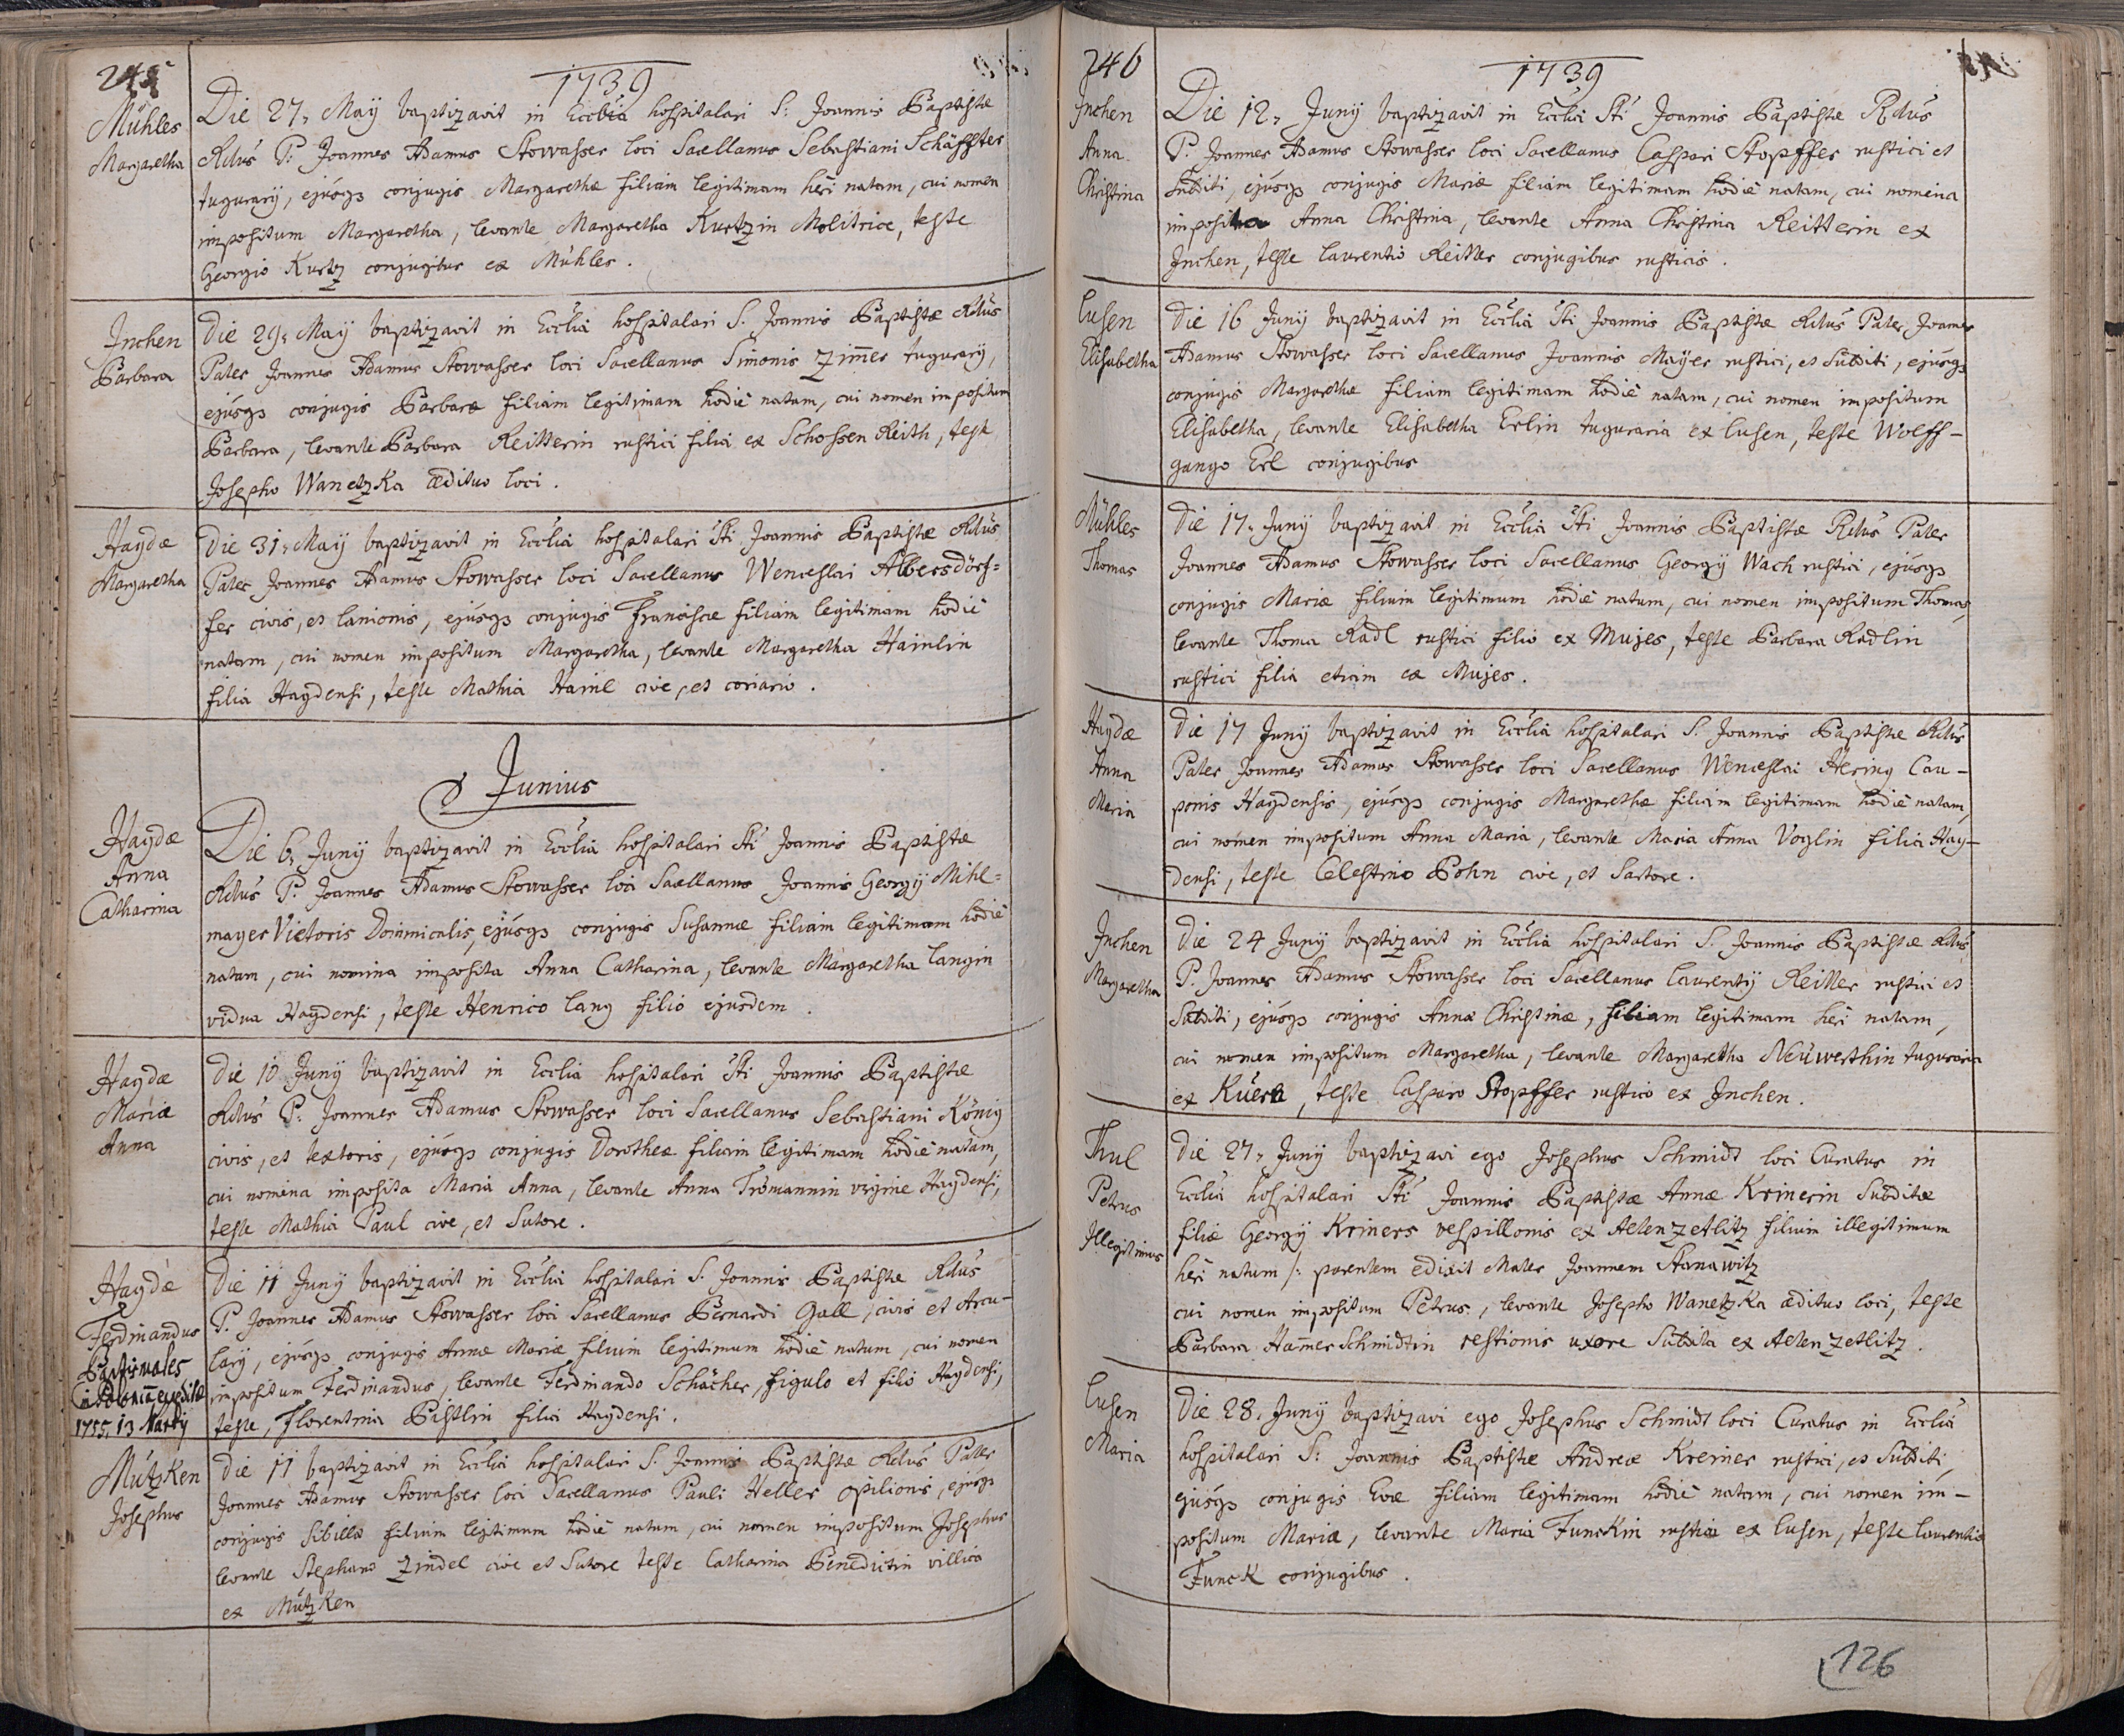 245
1739
Mühles
Margaretha
Die 27. Maÿ baptizavit in Ecclia hospitalari S: Joannis Baptistæ
Rdus P: Joannes Adamus Stowasser loci Sacellanus Sebastiani Schäffler
tugurarÿ, ejusq3 conjugis Margarethæ filiam legitimam heri natam, cui nomen
impositum Margaretha, levante Margaretha Kurtzin Molitrice, teste
Georgio Kurtz conjugibus ex Mühles.
Inchen
Barbara
Die 29. Maÿ baptizavit in Ecclia hospitalari S. Joannis Baptistæ Rdus
Pater Joannes Adamus Stowasser loci Sacellanus Simonis Zimer tugurarÿ,
ejusq3 conjugis Barbaræ filiam legitimam hodie natam, cui nomen impositum
Barbara, levante Barbara Reitterin rustici filia ex Schossen Reith, teste
Josepho WanetzKa ædituo loci.
Haydæ
Margaretha
Die 31. Maÿ baptizavit in Ecclia hospitalari Sti Joannis Baptistæ Rdus
Pater Joannes Adamus Stowasser loci Sacellanus Wenceslai Albersdörf=
fer civis, et lanionis, ejusq3 conjugis Franciscæ filiam legitimam hodie
natam, cui nomen impositum Margaretha, levante Margaretha Hainlin
filia Haydensi, teste Mathia Hainl cive, et coriario.
Junius
Haydæ
Anna
Catharina
Die 6. Junÿ baptizavit in Ecclia hospitalari Sti Joannis Baptistæ
Rdus P. Joannes Adamus Stowasser loci Sacellanus Joannis Georgÿ Mihl=
mayer Vietoris Dominicalis, ejusq3 conjugis Susannæ filiam legitimam hodie
natam, cui nomina imposita Anna Catharina, levante Margaretha Langin
vidua Haydensi, teste Henrico Lang filio ejusdem.
Haydæ
Maria
Anna
Die 10 Junÿ baptizavit in Ecclia hospitalari Sti Joannis Baptistæ
Rdus P. Joannes Adamus Stowasser loci Sacellanus Sebastiani König
civis, et textoris, ejusq3 conjugis Dorotheæ filiam legitimam hodie natam,
cui nomina imposita Maria Anna, levante Anna Tromannin virgine Haydensi,
teste Mathia Paul cive, et Sutore.
Haydæ
Ferdinandus
1755. 13 Martÿ
Die 11 Junÿ baptizavit in Ecclia hospitalari S. Joannis Baptistæ Rdus
P. Joannes Adamus Stowasser loci Sacellanus Bernardi Gall, civis et Arcu-
larÿ, ejusq3 conjugis Annæ Mariæ filium legitimum hodie natum, cui nomen
impositum Ferdinandus, levante Ferdinando Schächer, figulo et filio Haydensi,
teste, Florentina Pistlin filia Haydensi.
MützKen
Josephus
Die 11 baptizavit in Ecclia hospitalari S. Joannis Baptistæ Rdus Pater
Joannes Adamus Stowasser loci Sacellanus Pauli Heller opilionis, ejusq3
conjugis Sibillæ filium legitimum hodie natum, cui nomen impositum Josephus
levante Stephano Zindel cive et Sutore teste Catharina Benedictin villica
ex MützKen
246
1739
Inchen
Anna
Christina
Die 12. Junÿ baptizavit in Ecclia Sti Joannis Baptistæ Rdus
P. Joannes Adamus Stowasser loci Sacellanus Caspari Stopffer rustici et
subditi, ejusq3 conjugis Mariæ filiam legitimam hodie natam, cui nomina
imposita Anna Christina, levante Anna Christina Reitterin ex
Inchen, teste Laurentio Reitter conjugibus rusticis.
Lusen
Elisabetha
Die 16 Junÿ baptizavit in Ecclia Sti Joannis Baptistæ Rdus Pater Joannes
Adamus Stowasser loci Sacellanus Joannis Mayer rustici, et Subditi, ejusq3
conjugis Margarethæ filiam legitimam hodie natam, cui nomen impositum
Elisabetha, levante Elisabetha Erlin tuguraria ex Lusen, teste Wolff-
gango Erl conjugibus
Mühles
Thomas
Die 17. Junÿ baptizavit in Ecclia Sti Joannis Baptistæ Rdus Pater
Joannes Adamus Stowasser loci Sacellanus Georgÿ Wach rustici, ejusq3
conjugis Mariæ filium legitimum hodie natum, cui nomen impositum Thomas,
levante Thoma Radl rustici filio ex Mujes, teste Barbara Radlin
rustici filia etiam ex Mujes.
Haydæ
Anna
Maria
Die 17 Junÿ baptizavit in Ecclia hospitalari S. Joannis Baptistæ Rdus
Pater Joannes Adamus Stowasser loci Sacellanus Wenceslai Hering Cau-
ponis Haydensis, ejusq3 conjugis Margarethæ filiam legitimam hodie natam,
cui nomen impositum Anna Maria, levante Maria Anna Voglin filia Hay-
densi, teste Celestino Bohn cive, et Sartore.
Inchen
Margaretha
Die 24 Junÿ baptizavit in Ecclia hospitalari S. Joannis Baptistæ Rdus
P. Joannes Adamus Stowasser loci Sacellanus Laurentÿ Reitter rustici et
Subditi, ejusq3 conjugis Annæ Christinæ, filiam legitimam heri natam,
cui nomen impositum Margaretha, levante Margaretha Neüwerthin tuguraria
ex, teste Casparo Stopffer rustico ex Inchen.
Thul
Petrus
Illegitimus
Die 27. Junÿ baptizavi ego Josephus Schmidt loci Curatus in
Ecclia hospitalari Sti Joannis Baptistæ Annæ Krinerin Subditæ
filiæ Georgÿ Kriners vespillonis ex Altenzetlitz filium illegitimum
heri natum /: parentem edixit Mater Joannem Stanawitz
cui nomen impositum Petrus, levante Josepho WanetzKa ædituo loci, teste
Barbara HamerSchmidtin restionis uxore Subdita ex Altenzetlitz.
Lusen
Maria
Die 28. Junÿ baptizavi ego Josephus Schmidt loci Curatus in Ecclia
hospitalari S: Joannis Baptistæ Andreæ Kreiner rustici, et Subditi,
ejusq3 conjugis Evæ filiam legitimam hodie natam, cui nomen im-
positum Maria, levante Maria FuncKin rustica ex Lusen, teste Laurentio
FuncK conjugibus.
126